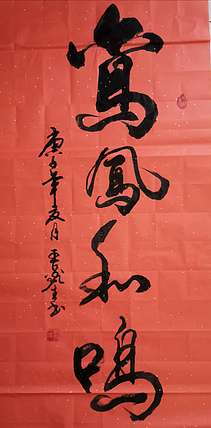 鸾凤和鸣
庚子年夏月